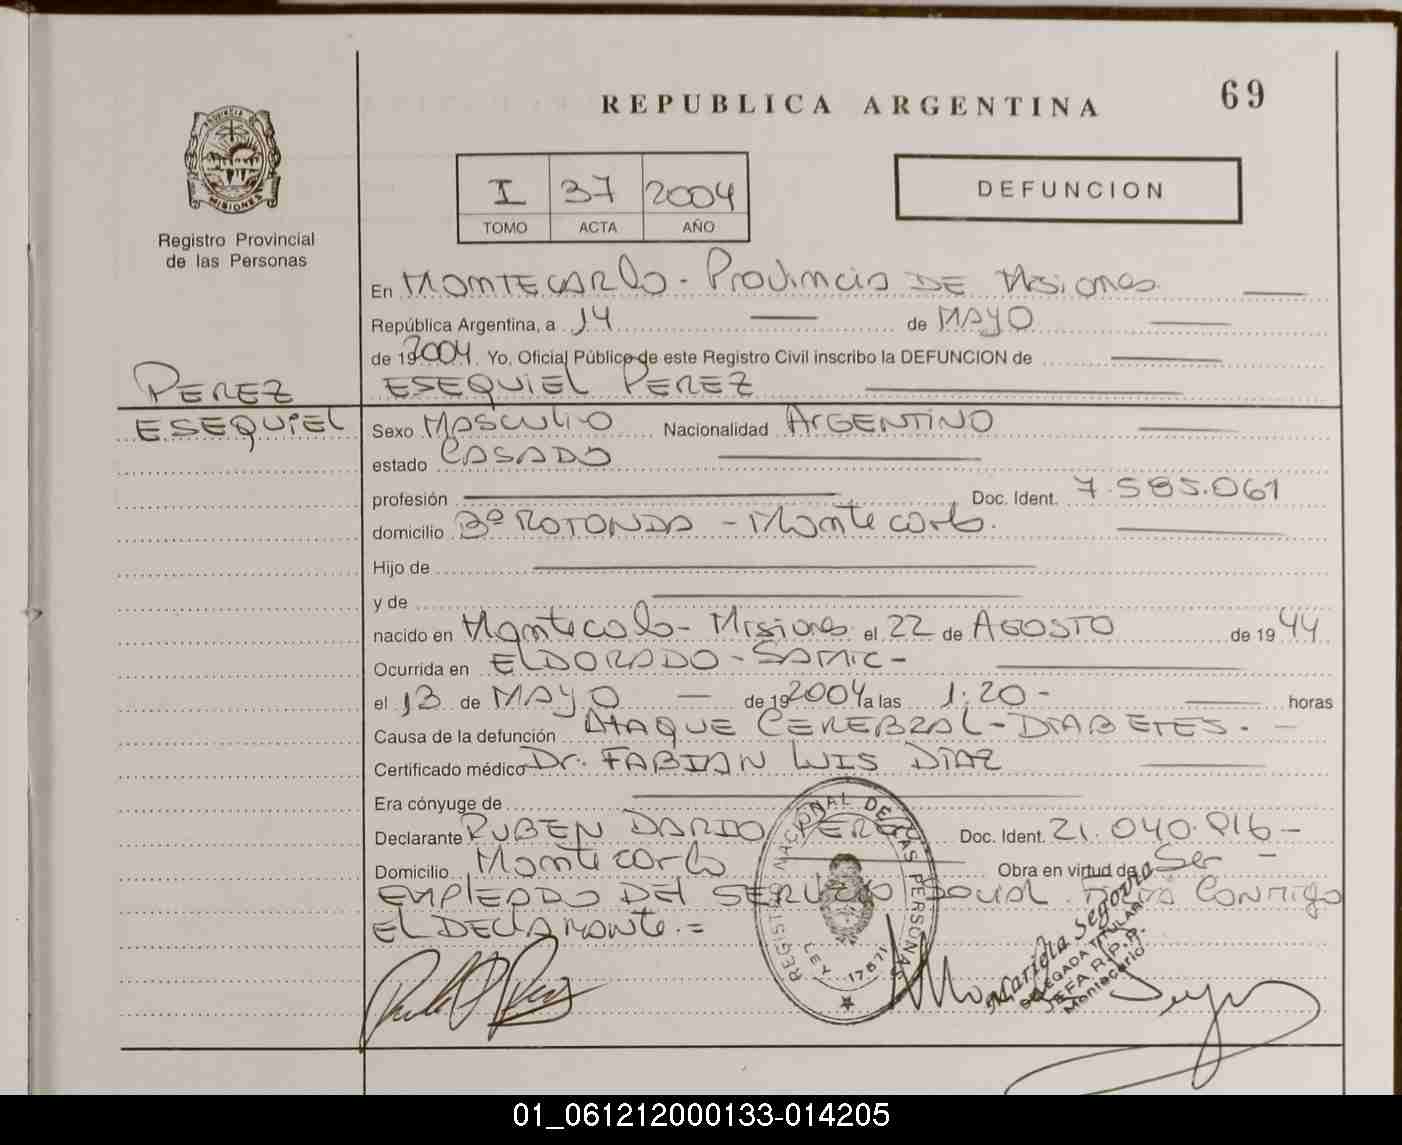 REPUBLICA ARGENTINA
69
PROVINCIA DE MISIONES
Registro Provincial
de las Personas
I 37 2004
TOMO ACTA AÑO
DEFUNCION
En MONTECARlo - Provincia DE Misiones
República Argentina, a 14 de MAYO
de 192004. Yo, Oficial Público de este Registro Civil inscribo la DEFUNCION de
PEREZ
ESEQUIEL PEREZ
ESEQUIEL
Sexo MASCULIO Nacionalidad ARGENTINO
estado CASADO
profesión Doc. Ident. 7.585.061
domicilio Bº ROTONDA - Montecarlo.
Hijo de
y de
nacido en Montecalo - Misiones el 22 de AGOSTO de 1944
Ocurrida en ELDORADO - SAMIC -
el 13 de MAYO de 192004 a las 1:20 - horas
Causa de la defunción ATAQUE CEREBRAL - DIABETES. -
Certificado médico Dr. FABIAN LUIS DIAZ
Era cónyuge de
Declarante RUBEN DARIO PEREZ Doc. Ident. 21.040.816 -
Domicilio Montecarlo Obra en virtud de Ser -
EMPLEADO DEL SERVICIO SOCIAL. FIRMA CONMIGO
EL DECLARANTE. =
REGISTRO NACIONAL DE LAS PERSONAS
LEY 17671
Mariela Segovia
DELEGADA TITULAR
JEFA R.P.P.
Montecarlo
01_061212000133-014205